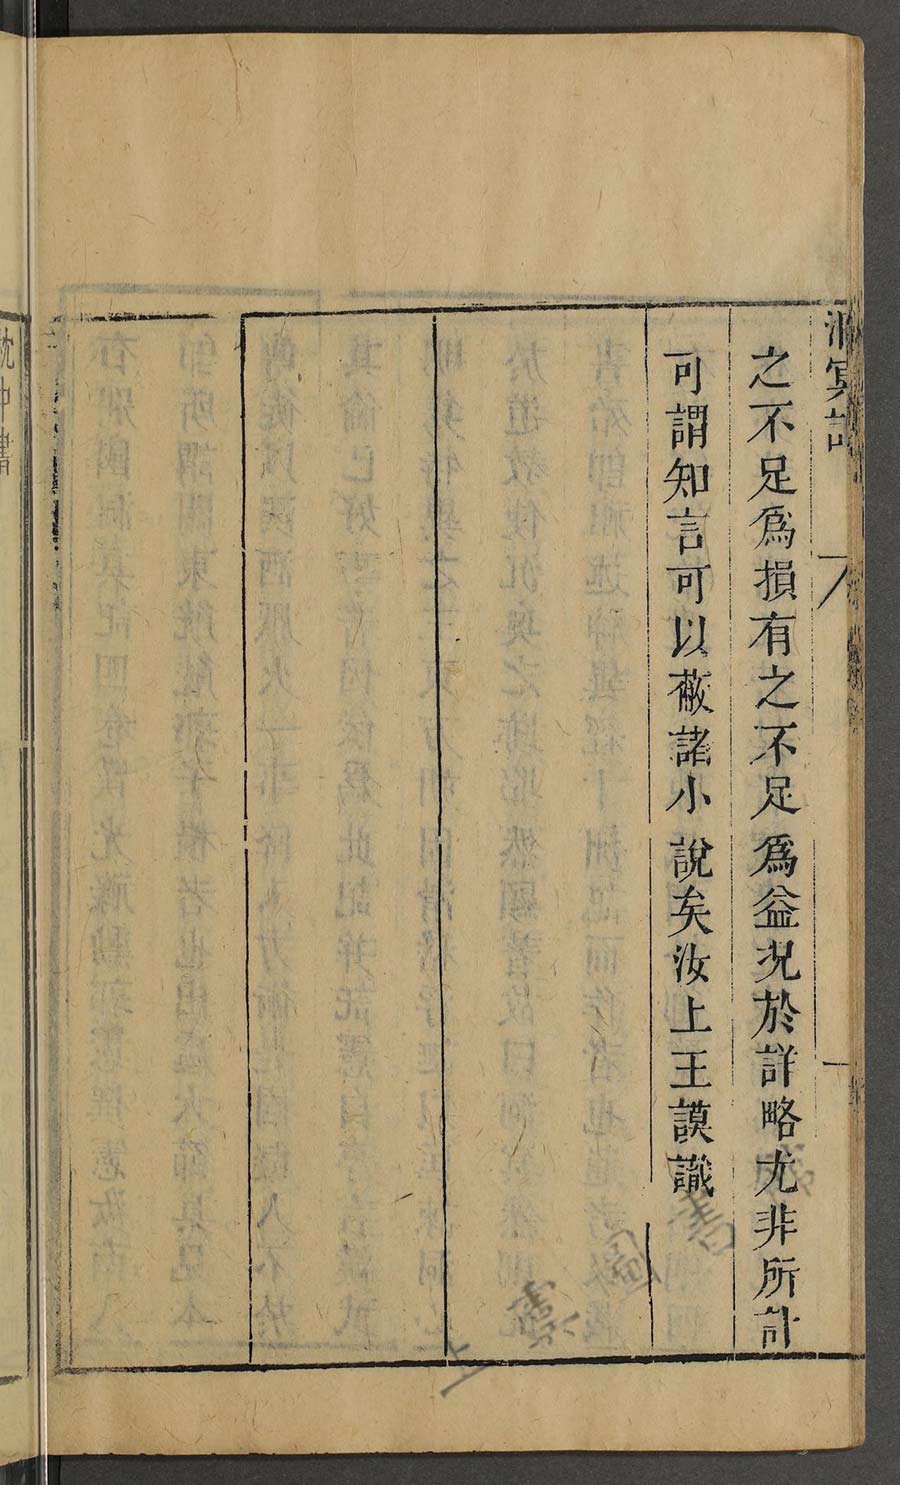 洞冥記
之不足爲損有之不足爲益况於詳略尤非所計
可謂知言可以蔽諸小說矣汝上王謨識
枕中書